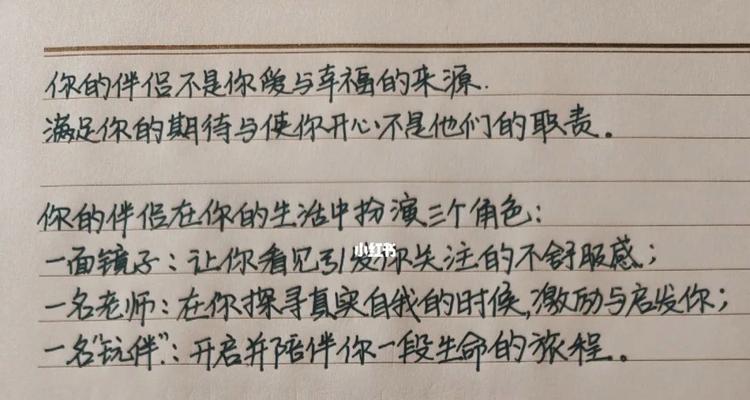 你的伴侣不是你爱与幸福的来源.
满足你的期待与使你开心不是他们的职责。
你的伴侣在你的生活中扮演三个角色:
小红书
一面镜子:让你看见引发你关注的不舒服感;
一名老师:在你探寻真实自我的时候,激励与启发你;
一名“玩伴”:开启并陪伴你一段生命的旅程。